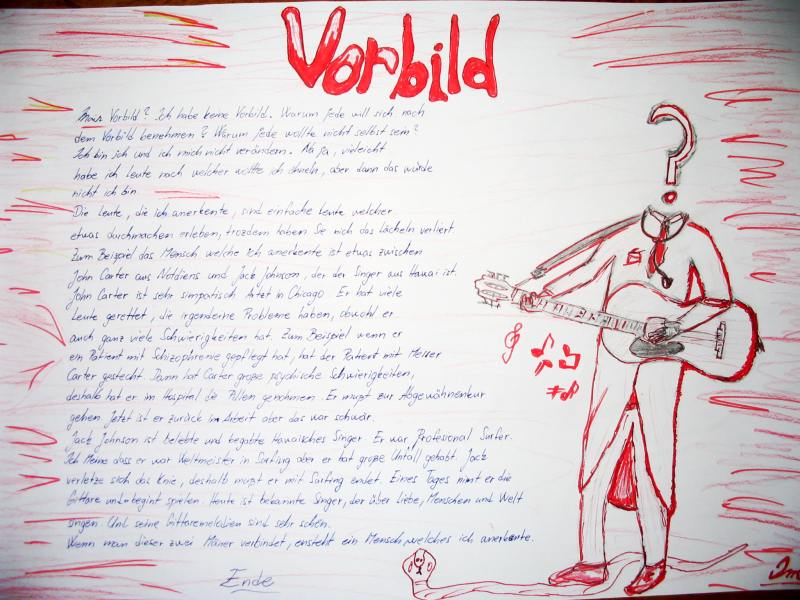 Vorbild
Mein Vorbild? Ich habe keine Vorbild. Warum jede will sich nach
dem Vorbild benehmen? Warum jede wollte nicht selbst sein?
Ich bin ich und ich mich nicht verändern. Na ja, vieleicht
habe ich Leute nach welcher wollte ich ähneln, aber dann das würde
nicht ich bin.
Die Leute, die ich anerkente, sind einfache Leute welcher
etwas durchmachen erleben, trozdem haben Sie nich das Lächeln verliert
Zum Beispiel das Mensch welche ich anerkente ist etwas zwischen
John Carter aus Notdiens und Jack Johnson, der der Singer aus Hawai ist.
John Carter ist sehr simpatisch Artzt in Chicago. Er hat viele
Leute gerettet, die irgendeine Probleme haben, obwohl er
auch ganz viele Schwierigkeiten hat. Zum Beispiel wenn er
ein Patient mit Schizophrenie gepflegt hat, hat der Patient mit Messer
Carter gestecht. Dann hat Carter große psychische Schwierigkeiten,
deshalb hat er im Hospital die Pillen genohmen. Er mußt zur Abgewöhnenkur
gehen. Jetzt ist er zurück im Arbeit aber das war schwär.
Jack Johnson ist belebte und begabte Hawaisches Singer. Er war Profesional Surfer.
Ich Meine dass er war Weltmeister in Surfing aber er hat große Unfall gehabt. Jack
verletze sich das Knie, deshalb mußt er mit Surfing endet. Eines Tages nimt er die
Gittare und begint spielen. Heute ist bekannte Singer, der über Liebe, Menschen und Welt
singen. Und seine Gittaremelodien sind sehr schön.
Wenn man dieser zwei Mäner verbindet, ensteht ein Mensch, welches ich anerkente.
Ende